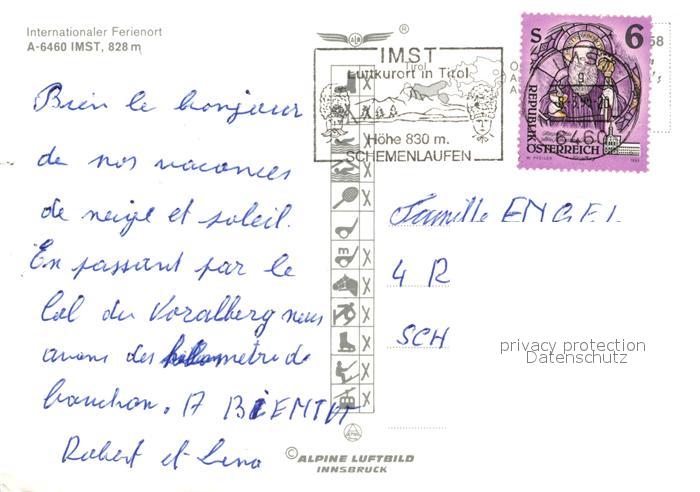 Internationaler Ferienort
A-6460 IMST, 828 m
Bien le bonjour
de nos vacances
de neige et soleil.
En passant par le
Col du Voralberg nous
avons des kilometre de
bouchon. A BIENTOT
Robert et Lina
®
IMST
Tirol
Luftkurort in Tirol
Höhe 830 m.
SCHEMENLAUFEN
IMST
6460
S 6
REPUBLIK
ÖSTERREICH
58
Famille ENGEL
4 R
SCH
privacy protection
Datenschutz
© ALPINE LUFTBILD
INNSBRUCK